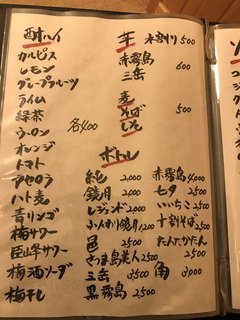 酎ハイ
カルピス
レモン
グレープフルーツ
ライム
緑茶
ウーロン 各400
オレンジ
トマト
アセロラ
ハト麦
青リンゴ
梅サワー
巨峰サワー
梅酒ソーダ
梅干し
芋 水割り 500
赤霧島
三岳 600
麦
そば 500
しそ
ボトル
純 2,000
鏡月 2,000
レジェンド 2,000
ふんわり鏡月 2,100
邑 2500
さつま島美人 2500
三岳 3500
黒霧島 2500
赤霧島 4,000
七夕 2500
いいちこ 2500
十割そば 2500
たんたかたん 2500
角 3,000